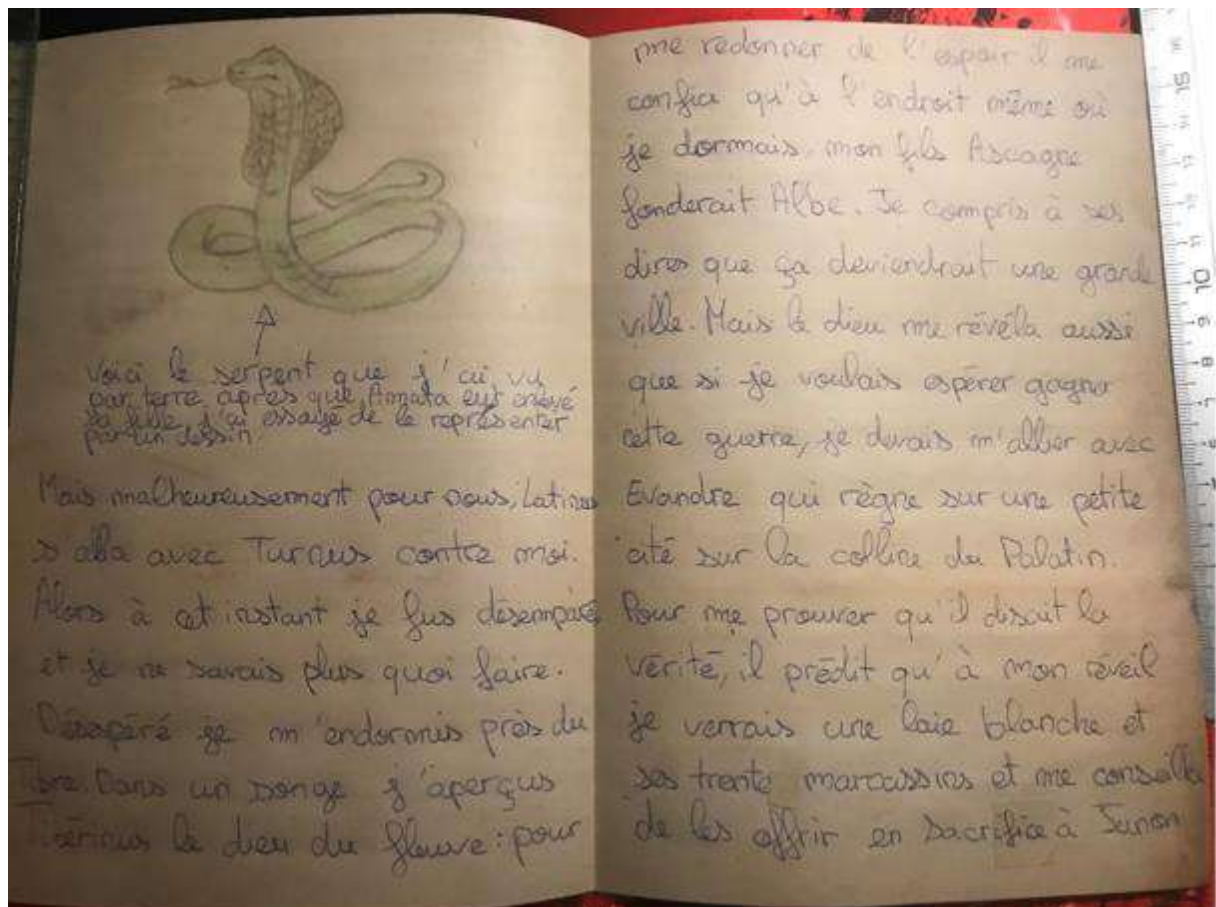 Voici le serpent que j'ai vu
par terre après que Amata eut enlevé
sa fille, j'ai essayé de le représenter
par un dessin.
Mais malheureusement pour nous, Latinus
s'allia avec Turnus contre moi.
Alors à cet instant je fus désemparé
et je ne savais plus quoi faire.
Désespéré je m'endormis près du
Tibre. Dans un songe j'aperçus
Tibérinus le dieu du fleuve : pour
me redonner de l'espoir il me
confia qu'à l'endroit même où
je dormais, mon fils Ascagne
fonderait Albe. Je compris à ses
dires que ça deviendrait une grande
ville. Mais le dieu me révéla aussi
que si je voulais espérer gagner
cette guerre, je devais m'allier avec
Evandre qui règne sur une petite
cité sur la colline du Palatin.
Pour me prouver qu'il disait la
vérité, il prédit qu'à mon réveil
je verrais une laie blanche et
ses trente marcassins et me conseilla
de les offrir en sacrifice à Junon